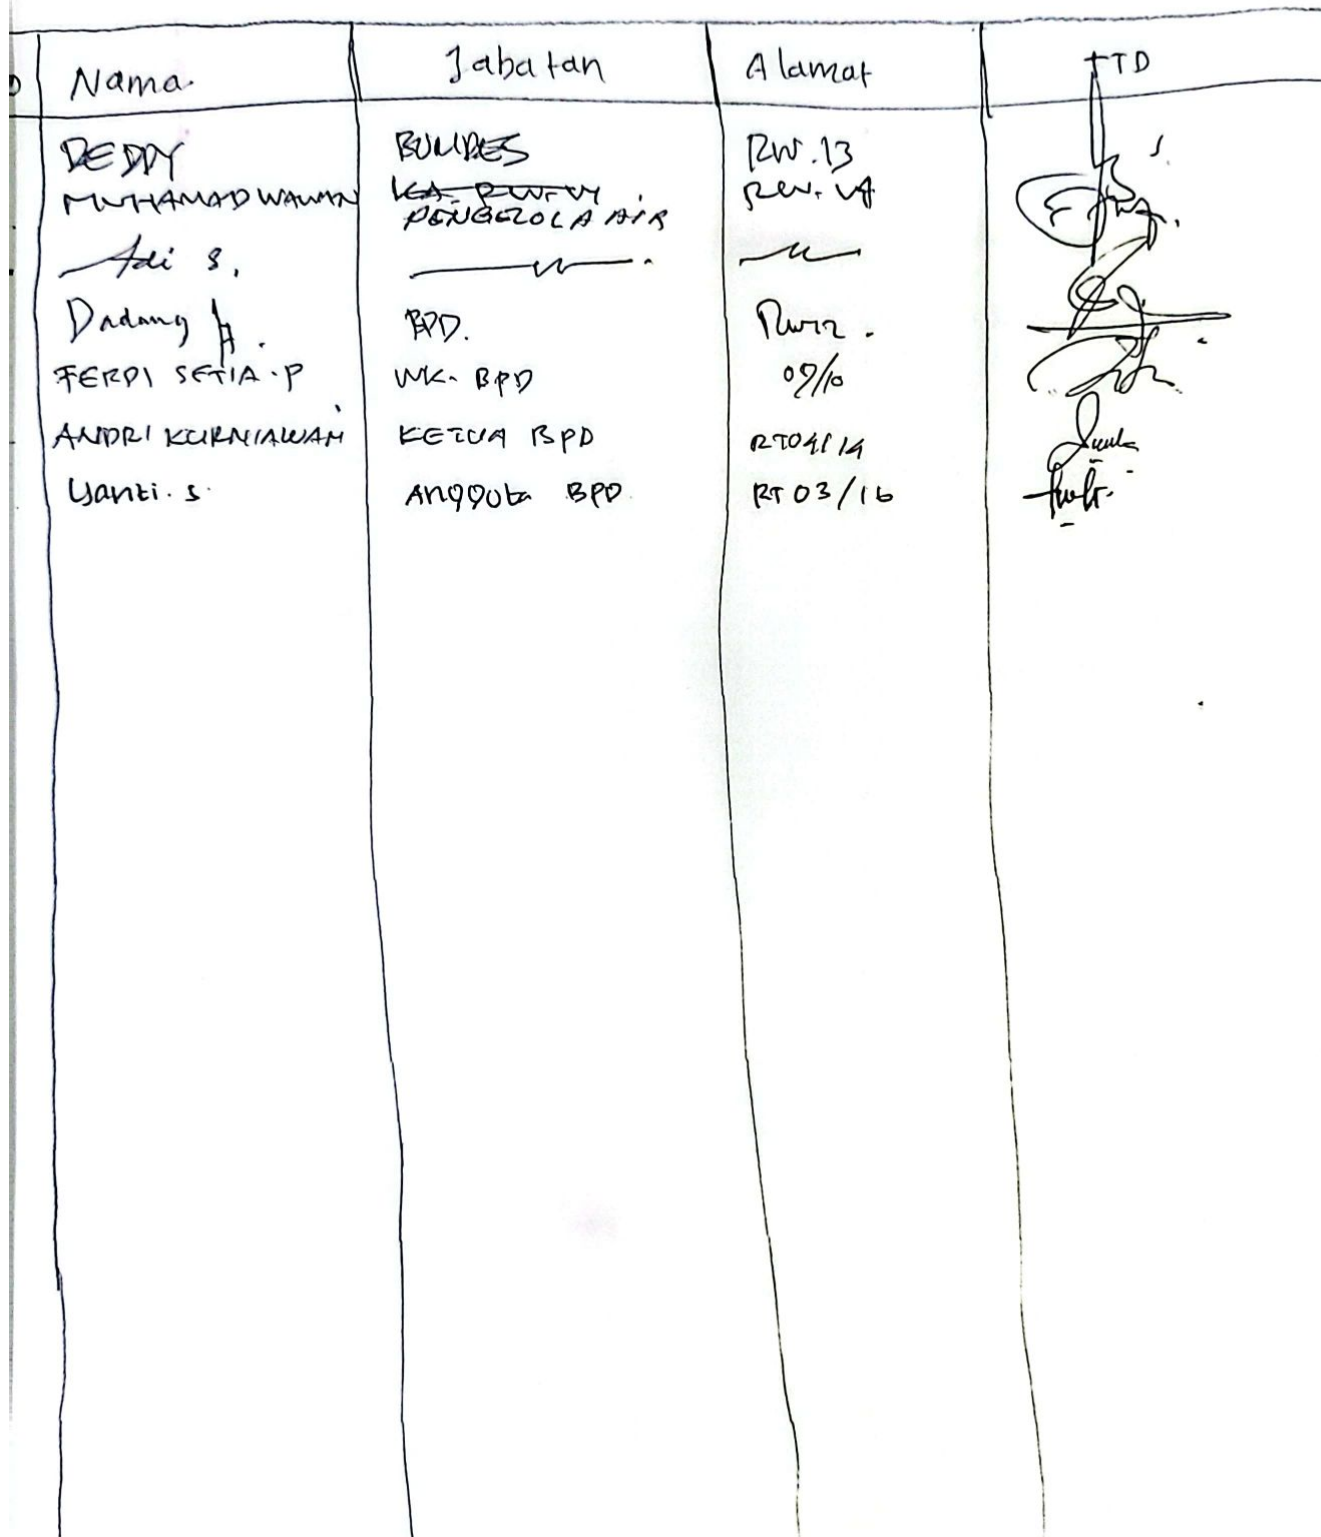 Nama. Jabatan Alamat TTD
DEDDY BUMDES RW.13
MUHAMAD WAWAN KA. RW. VI RW. VI
PENGELOLA AIR
Adi S.
Dadang H. BPD. RW 12.
FERDI SETIA.P WK. BPD 09/10
ANDRI KURNIAWAN KETUA BPD RT04/14
Yanti. S. Anggota BPD RT 03/16